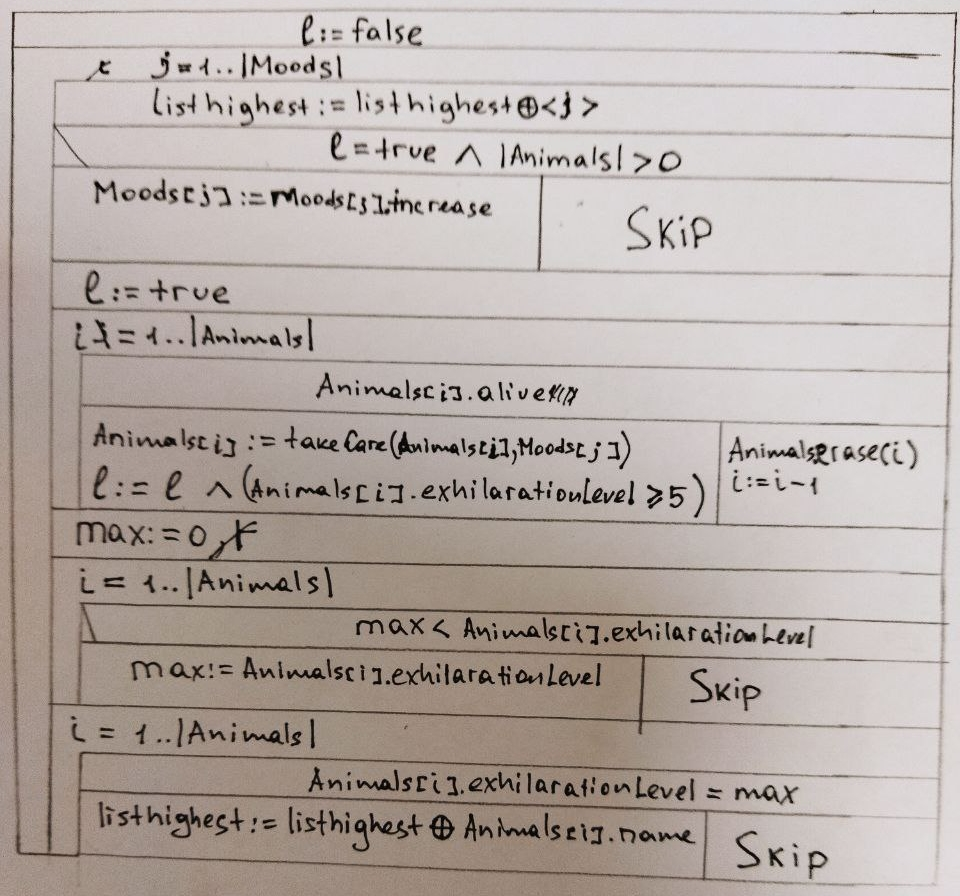 l := false
j = 1..|Moods|
listhighest := listhighest⊕<j>
l = true ∧ |Animals| > 0
Moods[j] := Moods[j].increase
SKIP
l := true
i = 1..|Animals|
Animals[i].alive
Animals[i] := takeCare(Animals[i],Moods[j])
l := l ∧ (Animals[i].exhilarationLevel ≥ 5)
Animals.erase(i)
i := i-1
max := 0
i = 1..|Animals|
max < Animals[i].exhilarationLevel
max := Animals[i].exhilarationLevel
Skip
i = 1..|Animals|
Animals[i].exhilarationLevel = max
listhighest := listhighest ⊕ Animals[i].name
Skip